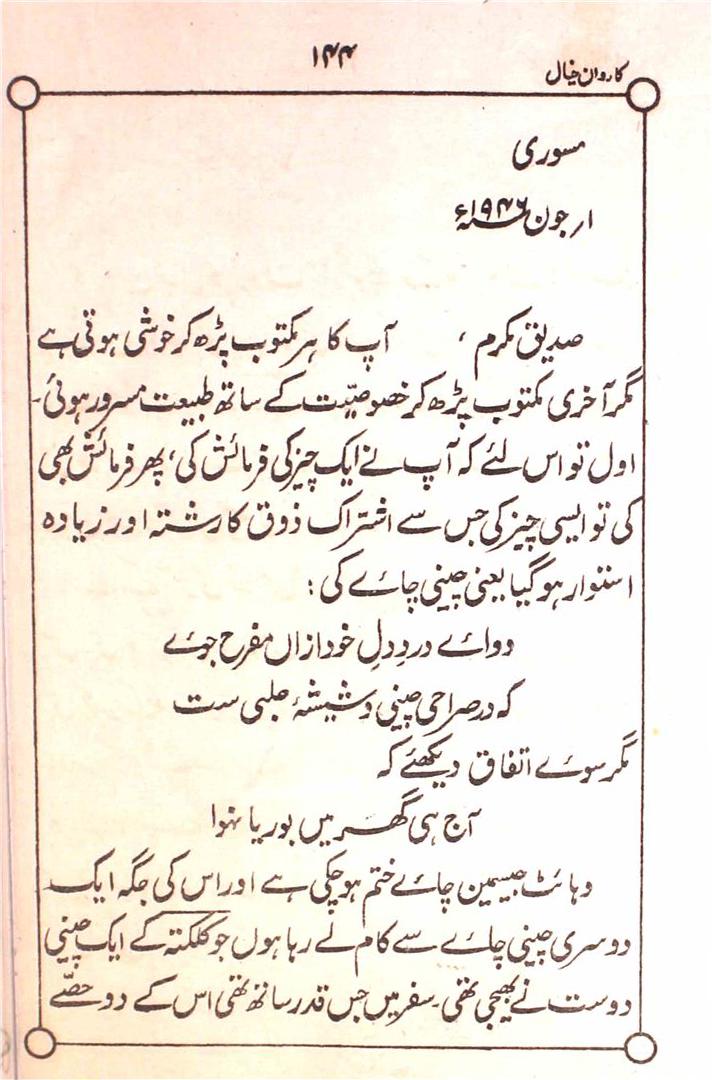 ۱۴۴
کاروان خیال
مسوری
۱ر جون ۱۹۴۶ء
صدیق مکرم، آپ کا ہر مکتوب پڑھ کر خوشی ہوتی ہے
مگر آخری مکتوب پڑھ کر خصوصیّت کے ساتھ طبیعت مسرور ہوئی۔
اول تو اس لئے کہ آپ نے ایک چیز کی فرمائش کی، پھر فرمائش بھی
کی تو ایسی چیز کی جس سے اشتراک ذوق کا رشتہ اور زیادہ
استوار ہو گیا یعنی چینی چائے کی:
دوائے دردِ دلِ خود ازاں مفرح جوئے
کہ در صراحی چینی و شیشۂ حلبی ست
مگر سوئے اتفاق دیکھئے کہ
آج ہی گھر میں بوریا نہوا
وہائٹ جیسمین چائے ختم ہو چکی ہے اور اس کی جگہ ایک
دوسری چینی چائے سے کام لے رہا ہوں جو کلکتہ کے ایک چینی
دوست نے بھیجی تھی۔ سفر میں جس قدر ساتھ تھی اس کے دو حصّے